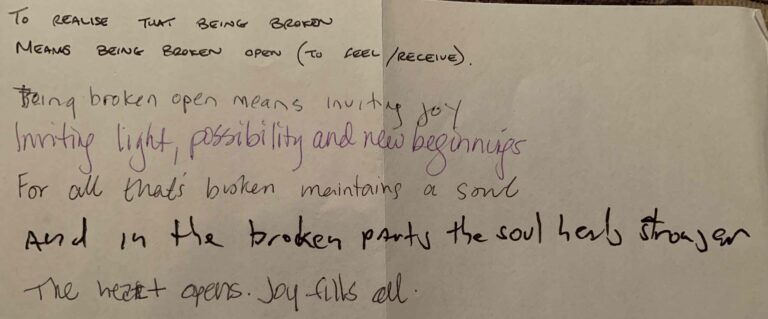 TO REALISE THAT BEING BROKEN
MEANS BEING BROKEN OPEN (TO FEEL/RECEIVE).
Being broken open means inviting joy
Inviting light, possibility and new beginnings
For all that's broken maintains a soul
And in the broken parts the soul heals stronger
The heart opens. Joy fills all.